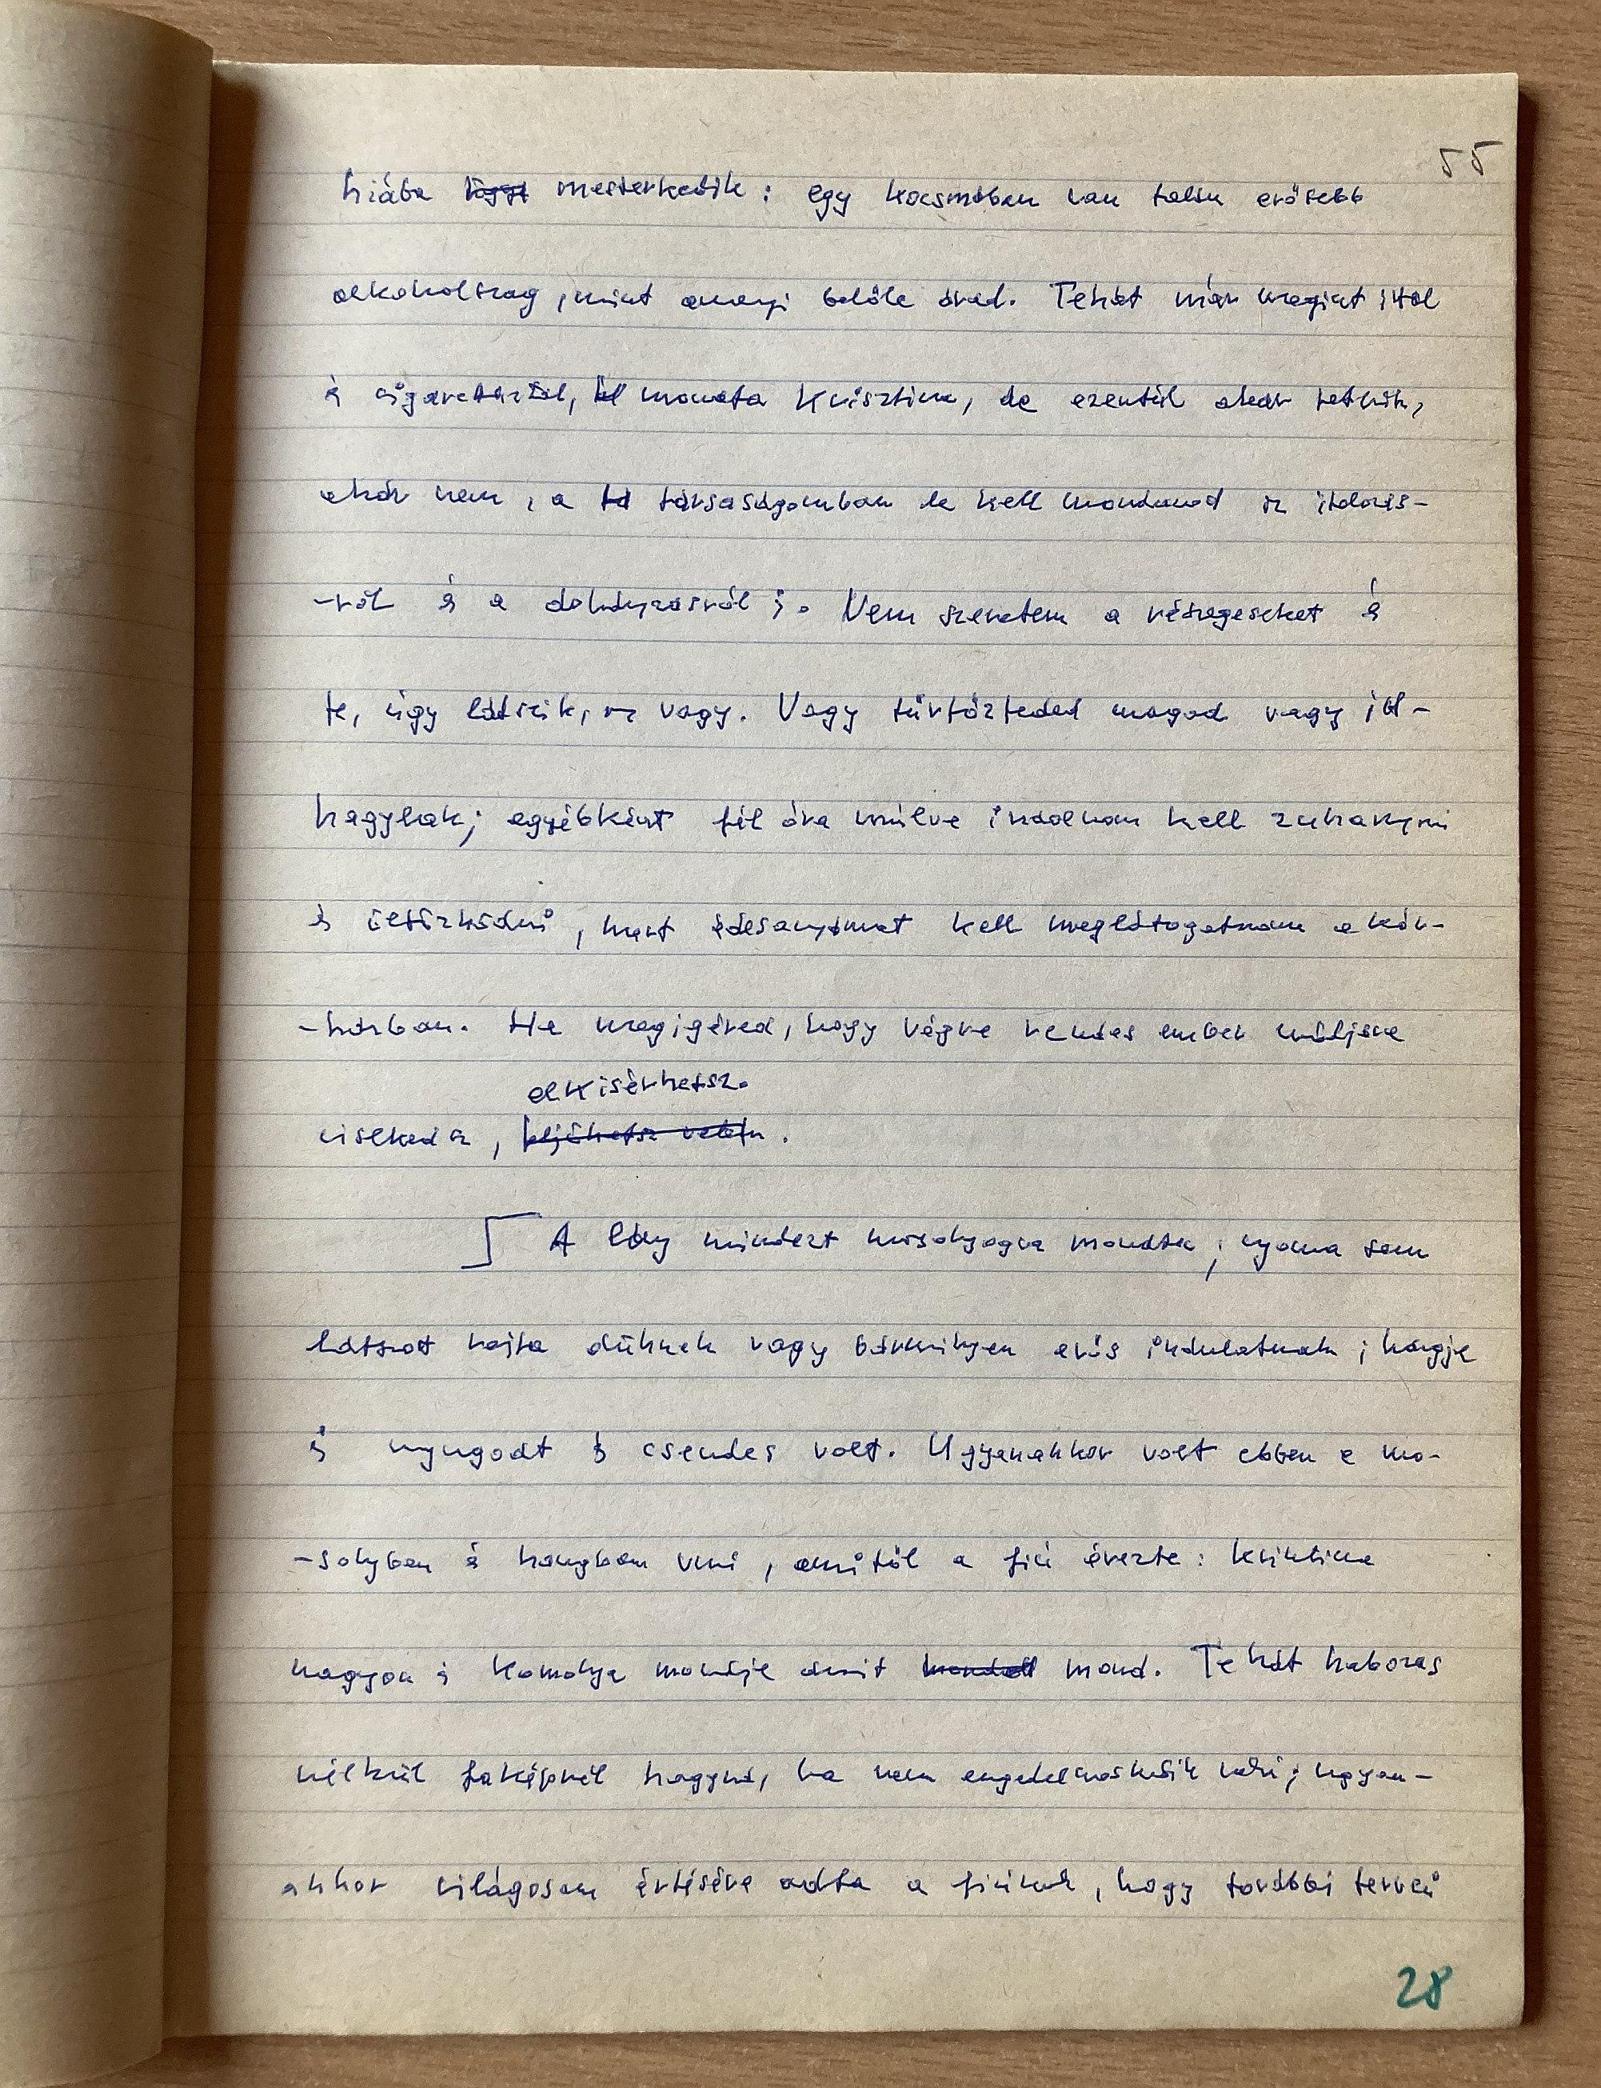 55
hiába mesterkedik: egy kocsmában van talán erősebb
alkoholszag, mint amenyi belőle árad. Tehát már megint ittál
és cigarettáztál, mondta Krisztina, de ezentúl akár tetszik,
akár nem, a társaságomban le kell mondanod az italozás-
-ról és a dohányzásról is. Nem szeretem a részegeseket és
te, úgy látszik, az vagy. Vagy türtőzteded magad vagy itt-
hagylak; egyébként fél óra múlva indulnom kell zuhanyozni
és öltözködni, mert édesanyámat kell meglátogatnom a kór-
-házban. Ha megigéred, hogy végre rendes ember módjára
elkisérhetsz.
viselkedsz, eljöhetsz velem.
A lány mindezt mosolyogva mondta, nyoma sem
látszott rajta dühnek vagy bármilyen erős indulatnak; hangja
is nyugodt és csendes volt. Ugyanakkor volt ebben a mo-
-solyban és hangban vmi, amitől a fiú érezte: Krisztina
nagyon is komolyan mondja amit mond. Tehát habozás
nélkül faképnél hagyná, ha nem engedelmeskedik neki; ugyan-
akkor világosan értésére adta a fiúnak, hogy további tervei
28